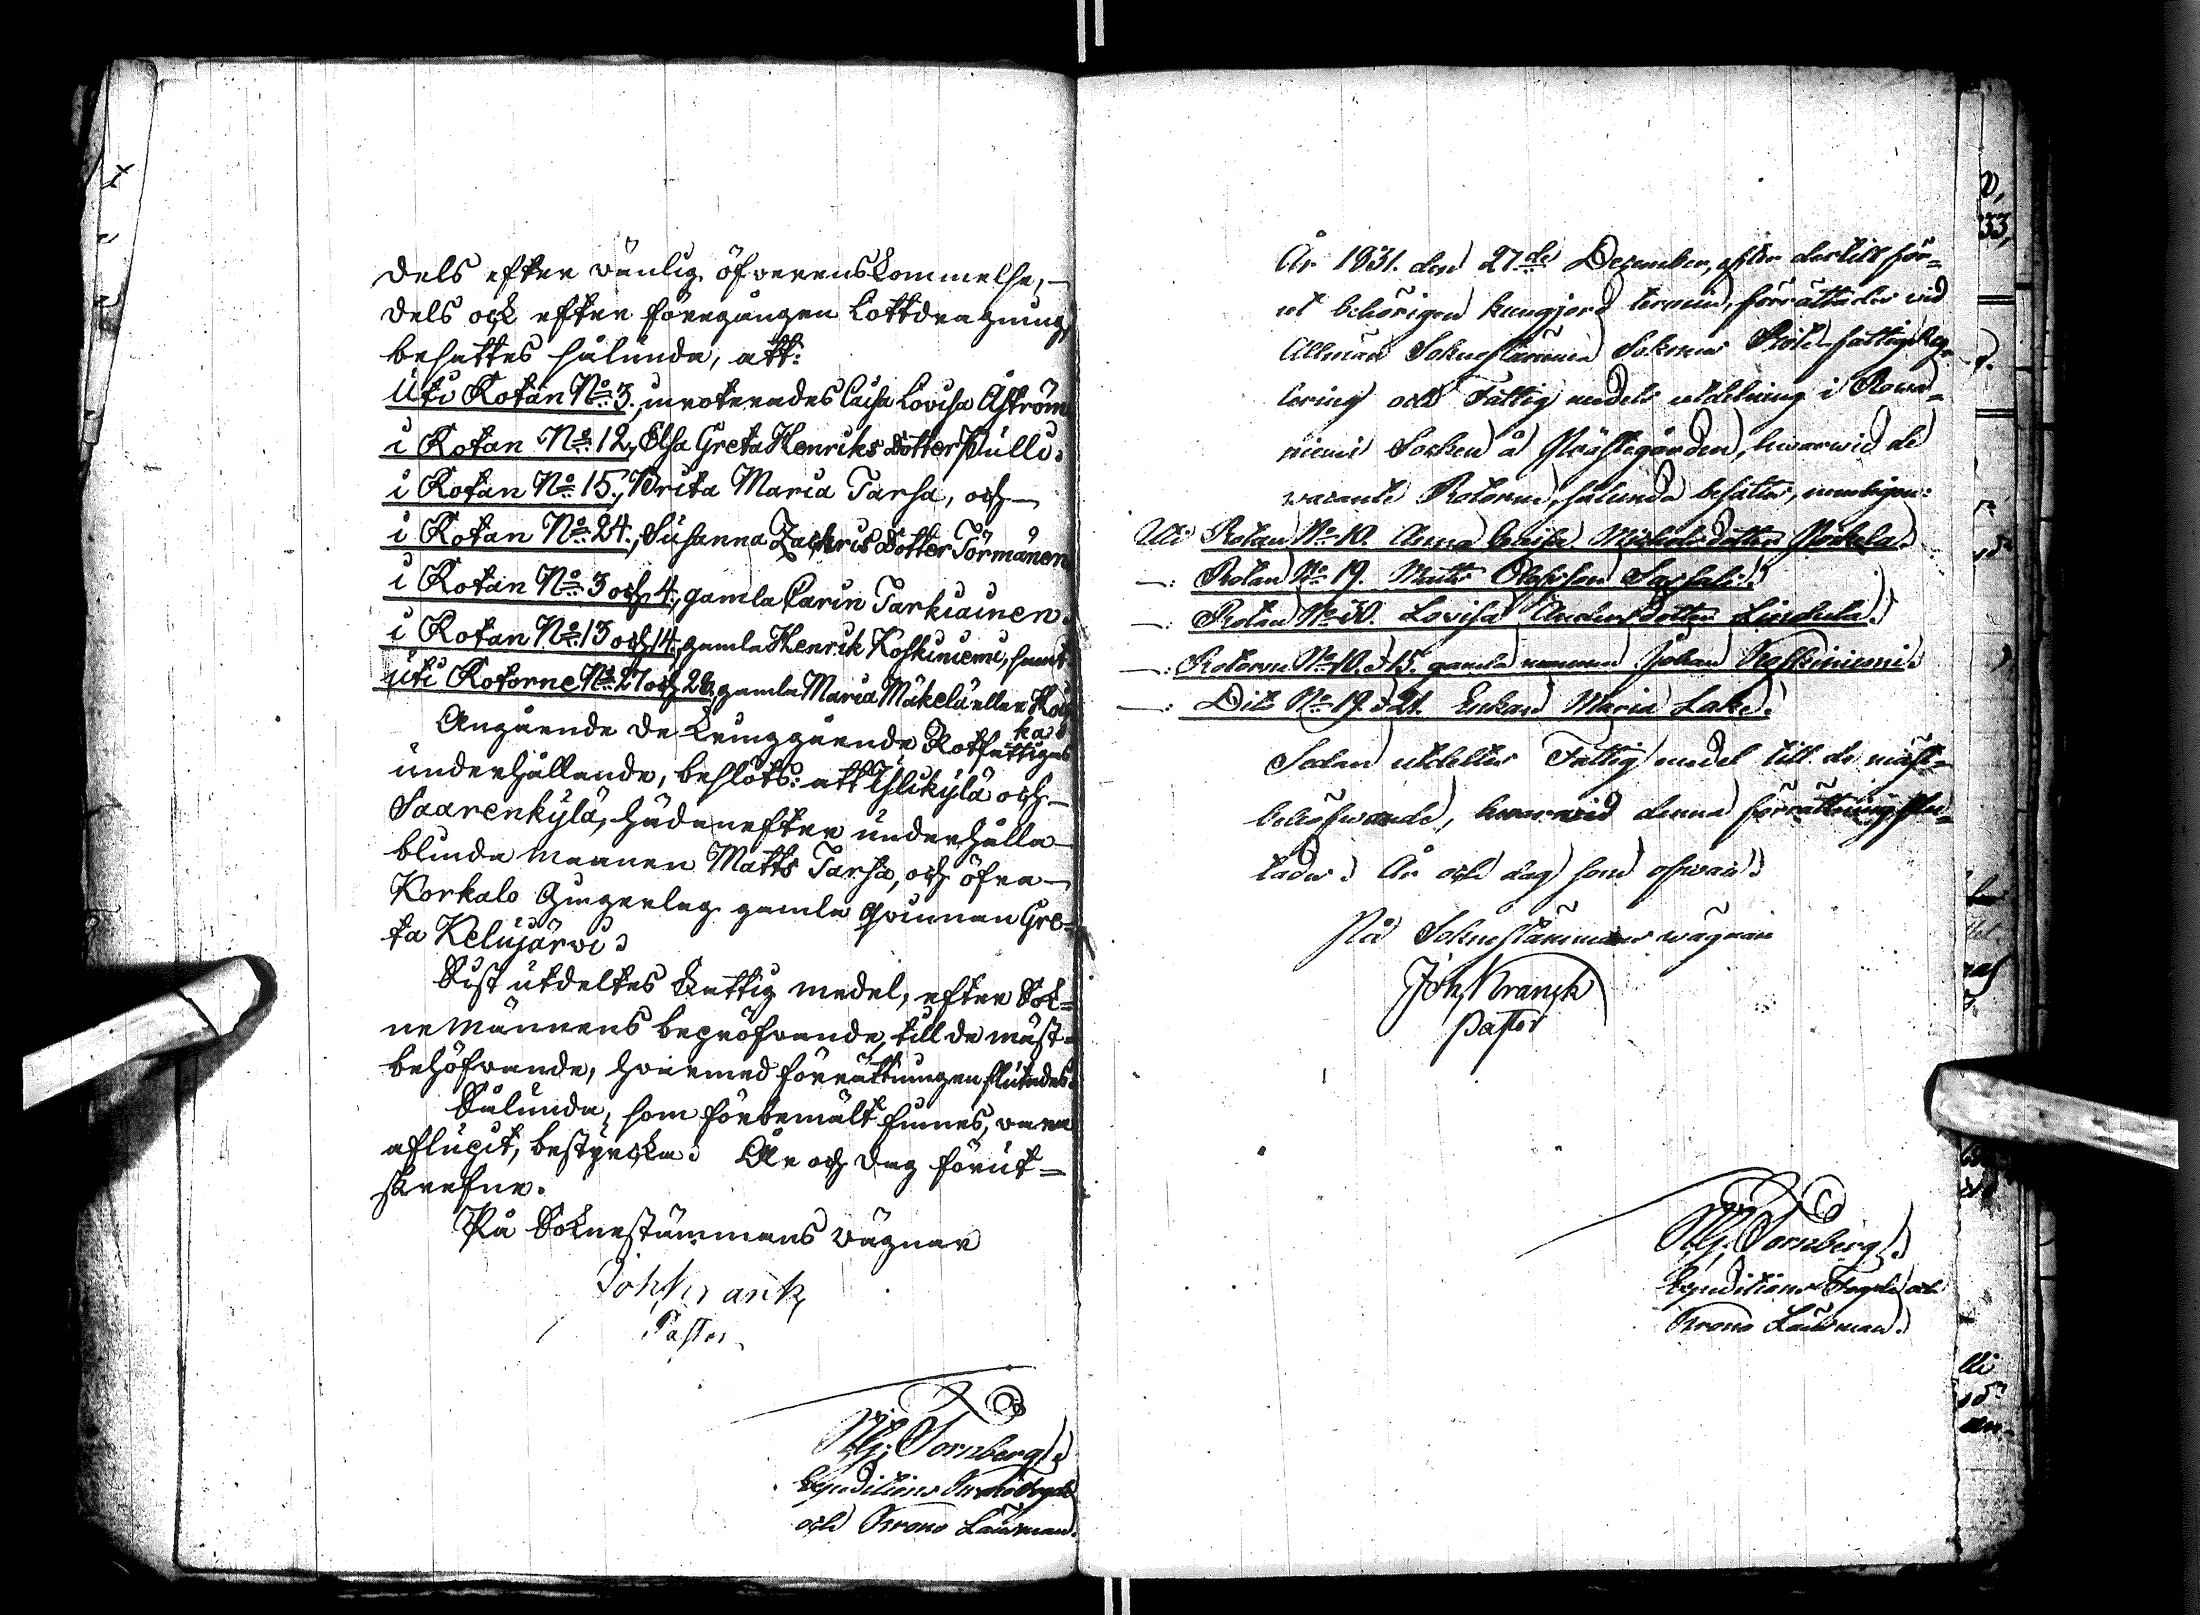 dels efter wänlig öfverenskommelse,
dels ock efter föregången Lottdragning
besattes sålunda, att:
Uti Rotan No 3. inroterades Caisa Lovisa Åström
i Rotan No 12, Elsa Greta Henriks Dotter Pulli.
i Rotan No 15., Brita Maria Tarsa, och
i Rotan No 24., Susanna Zachris Dotter Törmänen
i Rotan No 3 och 4., gamla Carin Tarkiainen.
i Rotan No 13 och 14. gamla Henrik Koskiniemi, samt
uti Rotorne No 27 och 28, gamla Maria Mäkelä eller
Angående de kringgående Rotfattigas
underhållande, beslöts: att Ylikylä och
Saarenkylä, hädanefter underhålla
blinda mannen Matts Tarsa, och öfra
Korkalo Byggerlag gamla qvinnan Gre-
ta Kelujärvi.
Sist utdeltes Fattig medel, efter Sok-
ne Männens bepröfvande, till de mäst
behöfvande, hvarmed förrättningen slutades.
Sålunda, som förbemält finnes, vara
aflupit, bestyrcka. År och dag förut-
skrefne.
På Soknestämmans vägnar
Joh Wranck
Pastor
Tornberg
Expeditions Kronofogde
och Krono Länsman.
År 1831. den 27.de December, efter dertill för-
ut behörigen kungjord termin, förrättades vid
Allmän Sokneståmma Soknens Rotefattig Reg-
lering och Fattig medels utdelning i Rova-
niemi Socken å Prästegården, hvarvid de
vacante Rotorne, sålunda besattes, nemligen:
Uti Rotan No 10. Anna Caisa Michels dotter
—: Rotan No 19. Matts Olofsson
—: Rotan No 30. Lovisa Anders dotter Lindula.
—: Rotorne No 10. & 15. gamla mannen Johan Koskiniemi.
—: Dito No 19. & 21. Enkan Maria Lake.
Sedan utdeltes Fattig medel till de mäst-
behöfvande, hvarvid denna förrättning slu-
tades. År och dag som ofvan.
På Sokneståmmans vägnar
Joh Wranck
Pastor
Tornberg
Expeditions Fogde och
Krono Länsman.